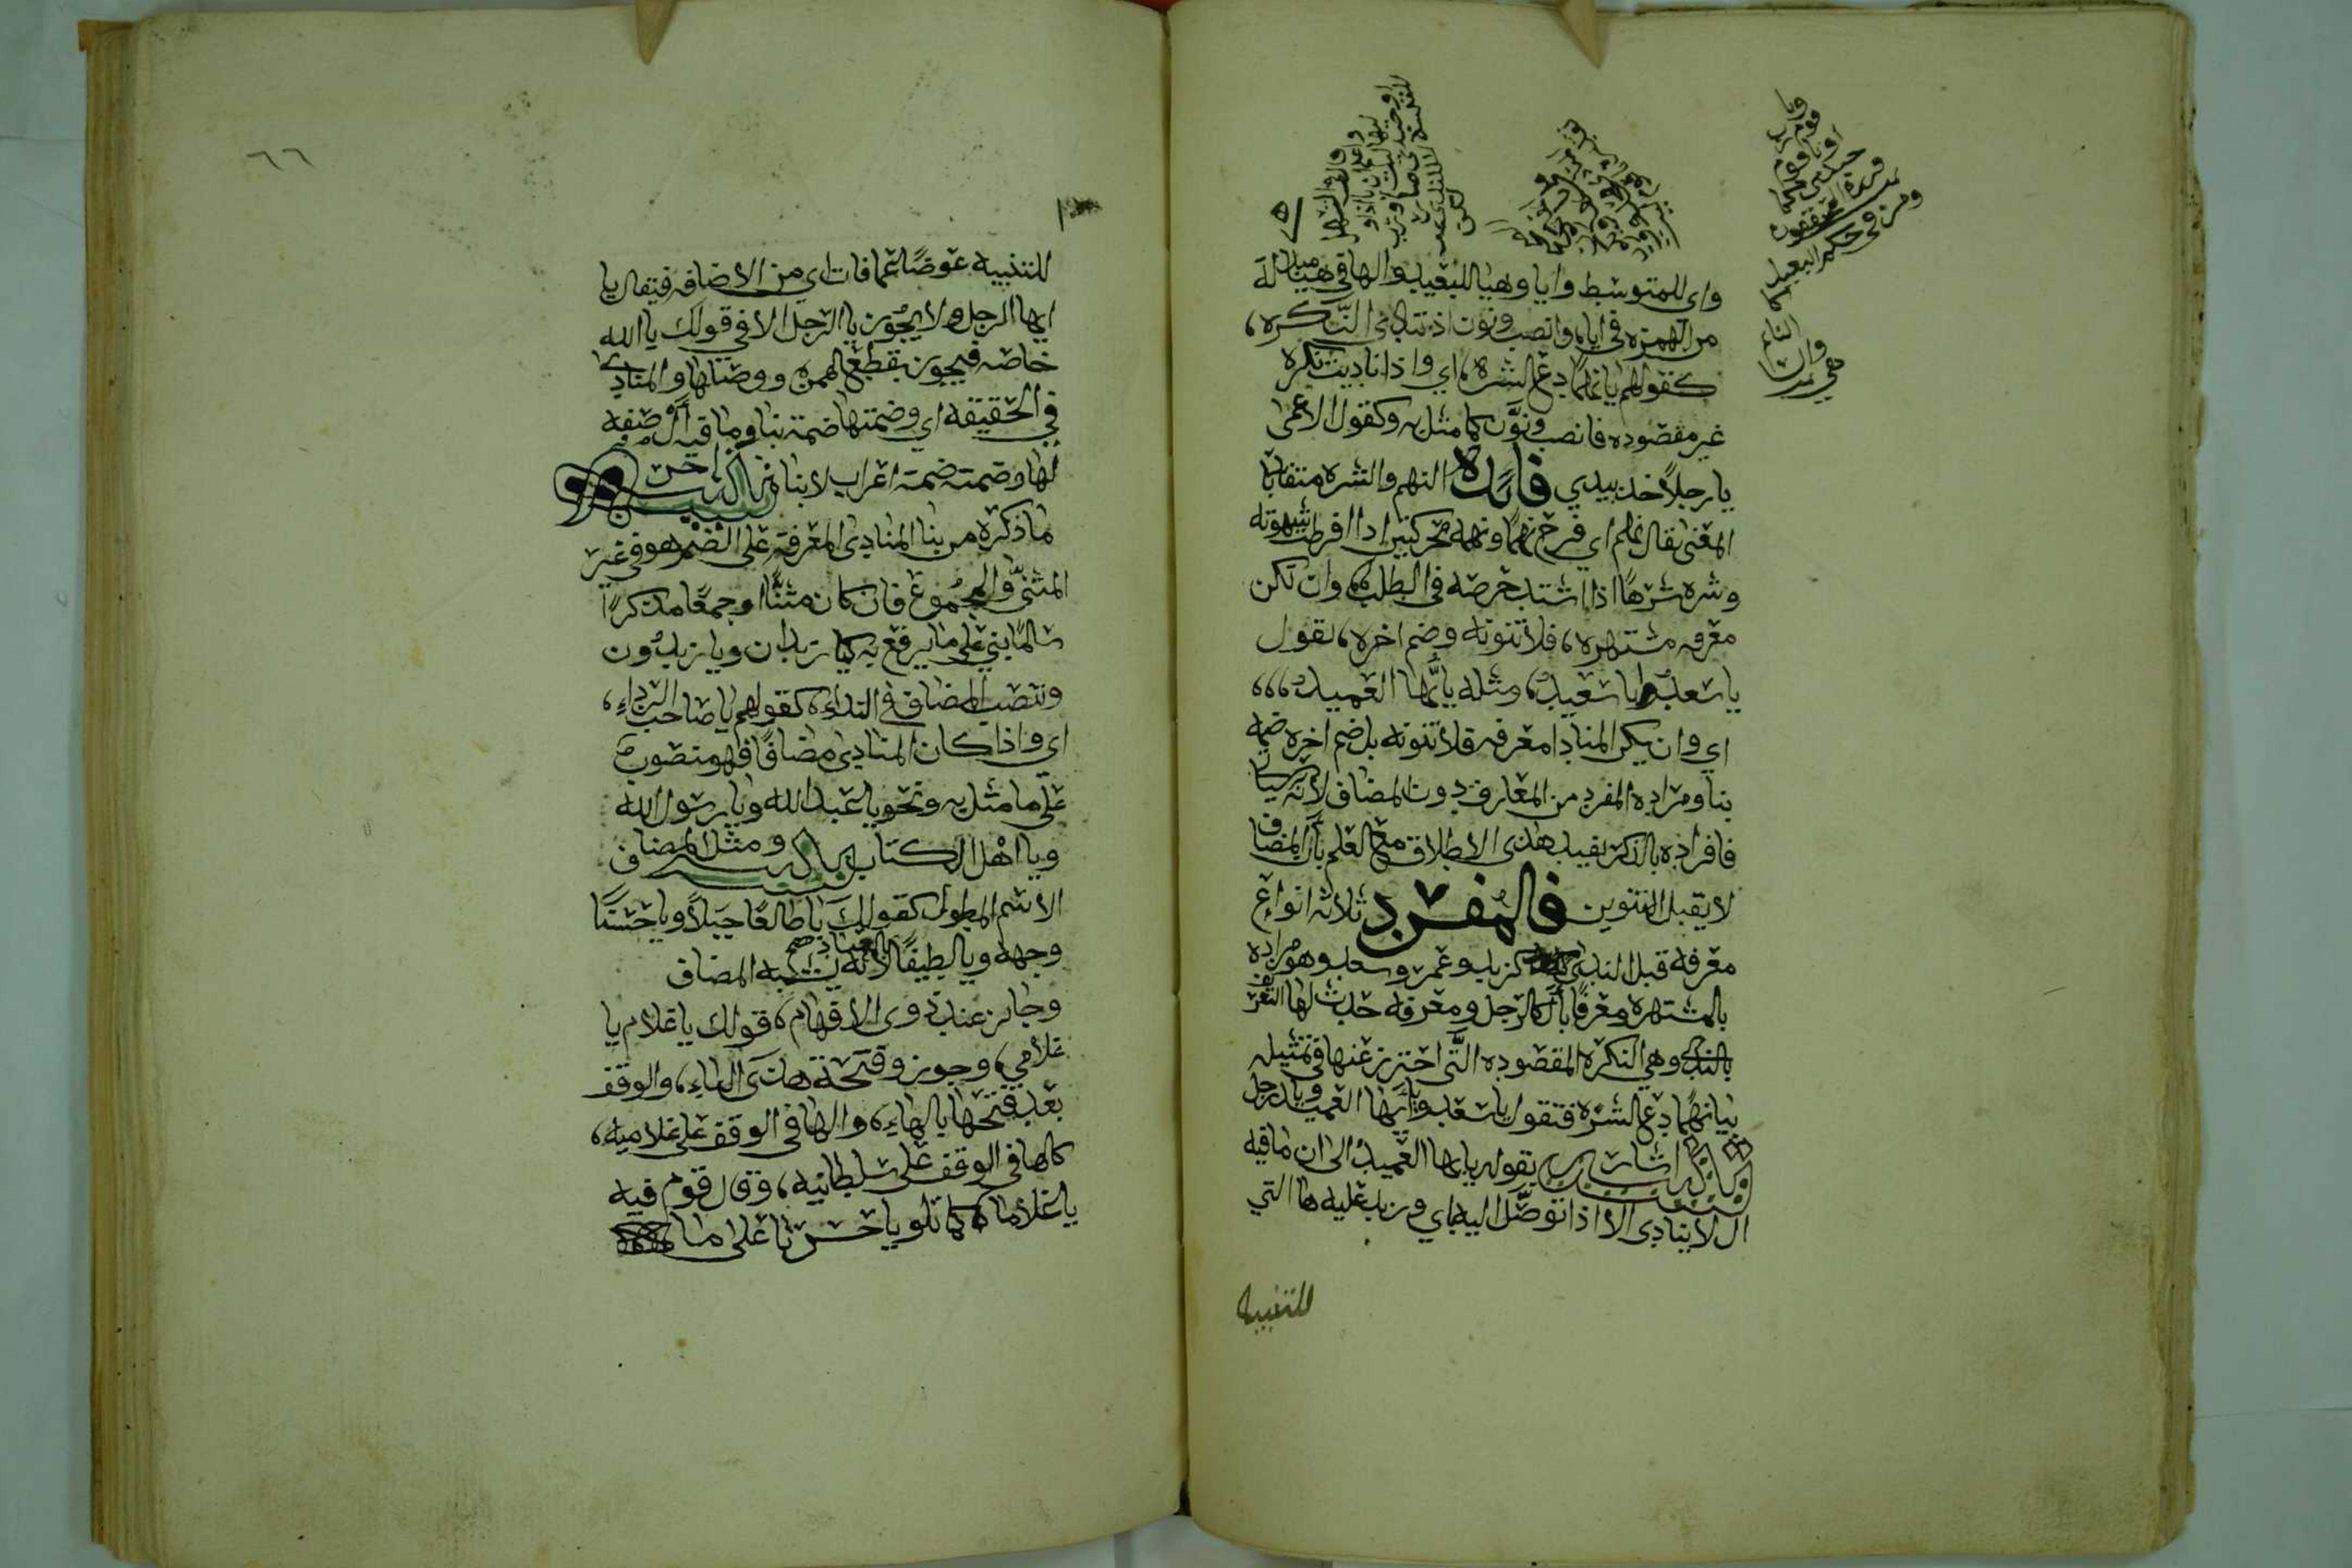 واى للمتوسط وايا وهيا للبعيد والها في هيا مبدلة
من الهمزه في ايا، وانصب ونون اذ تنادى النكره،
كقولهم يا نهمًا دع الشره، اي واذا ناديت نكره
غير مقصوده فانصب ونوّن كما مثل به وكقول الاعمى
يا رجلاً خذ بيدي فائده النهم والشره متقاربا
المعنى يقال نهم اي فرح نهمًا ونهمه بتحركتين اذا افرطت شهوته
وشره شرهًا اذا اشتد حرصه في الطلب، وان تكن
معرفه مشتهره، فلا تنونه وضم اخره، تقول
يا سعد ايا سعيد، ومثله يا ايّها العميد،،،
اي وان يكن المنادا معرفه فلا تنونه بل ضم اخره ضمه
بنا ومراده المفرد من المعارف دون المضاف لانه سياتي
فافراده بالذكر يفيد هذى الاطلاق مع العلم بأن المضاف
لا يقبل التنوين فالمفرد ثلاثه انواع
معرفة قبل الندى كزيد وعمر وسعد وهو مراده
بالمشتهره ومعرفًا بأل كالرجل ومعرفه حدث لها التعريف
بالندى وهي النكره المقصوده التي احترز عنها في تمثيله
بيا نهمًا دع الشره فتقول يا سعد ويا ايّها العميد ويا رجل
تنبيه اشار بقوله يا ايها العميد الى ان ما فيه
ال لا ينادى الا اذا توصّل اليه باي وزيد عليه ها التي
للتنبيه
٦٦
للتنبيه عوضًا عما فات اي من الاضافه فيقال يا
ايها الرجل ولا يجوز يا الرجل الا في قولك يا الله
خاصه فيجوز بقطع الهمزه ووصلها والمنادى
في الحقيقه اي وضمتها ضمة بنا وما فيه أل صفه
لها وضمته ضمة اعراب لا بنا تنبيه اخر
ما ذكره من بنا المنادى المعرفه على الضم هو في غير
المثنى والمجموع فان كان مثنًّا او جمعًا مذكرًا
سالمًا بني على ما يرفع به كيا زيدان ويا زيدُون
وتنصب المضاف في النداء، كقولهم يا صاحب الرداء،
اي واذا كان المنادى مضافًا فهو منصوب
على ما مثل به ونحو يا عبد الله ويا رسول الله
ويا اهل الكتاب تنبيه ومثل المضاف
الاسم المطول كقولك يا طالعًا جبلاً ويا حسنًا
وجهه ويا لطيفًا بالعباد لانه يشبه المضاف
وجائز عند ذوى الافهام، قولك يا غلام يا
غلامي، وجوزوا فتحة هذى الياء، والوقف
بعد فتحها بالهاء، والها في الوقف على غلاميه،
كالها في الوقف على سلطانيه، وقال قوم فيه
يا غلاما كما تلو يا حسرتا على ما